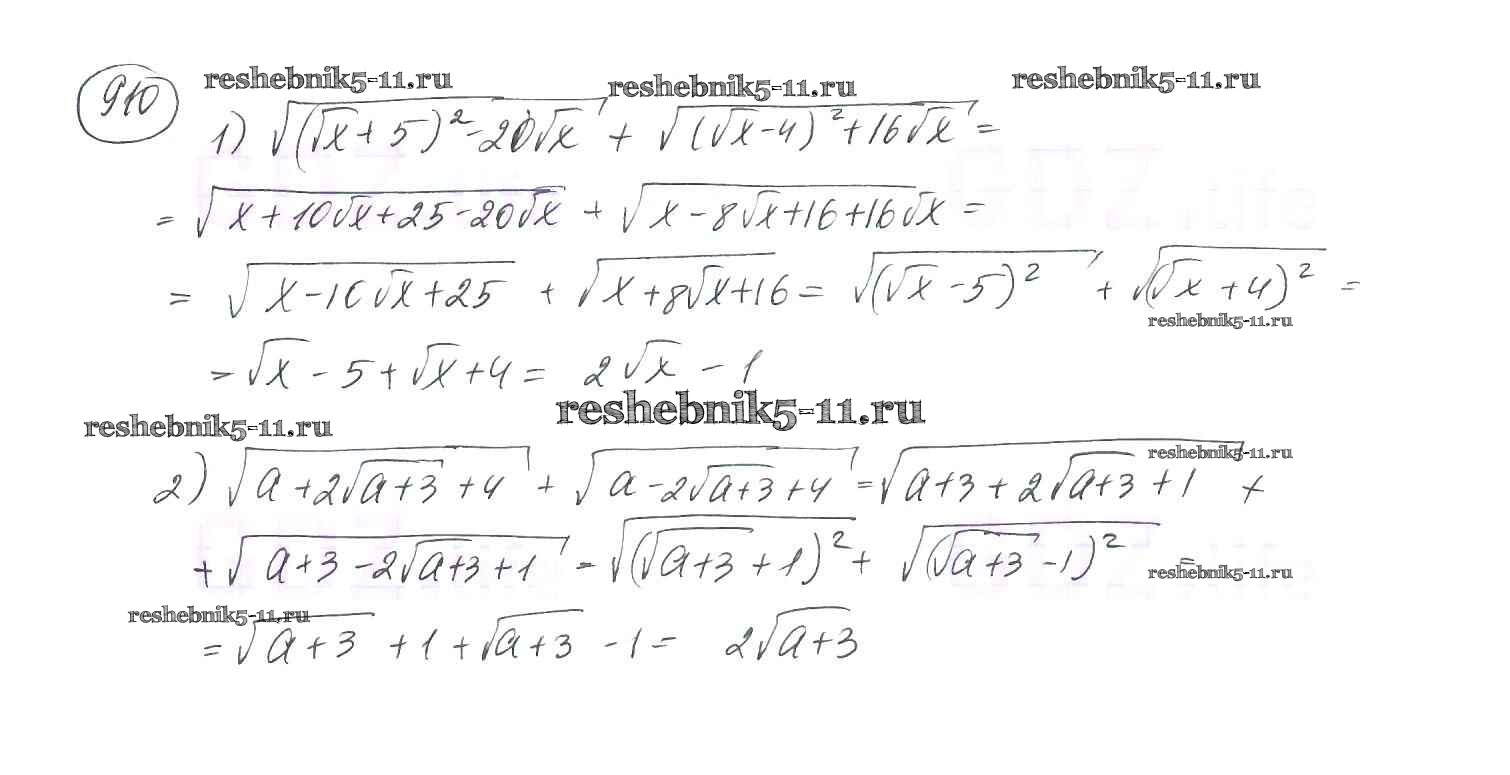 910 reshebnik5-11.ru reshebnik5-11.ru reshebnik5-11.ru
1) √((√x + 5)² - 20√x) + √((√x - 4)² + 16√x) =
= √(x + 10√x + 25 - 20√x) + √(x - 8√x + 16 + 16√x) =
= √(x - 10√x + 25) + √(x + 8√x + 16) = √((√x - 5)²) + √((√x + 4)²) =
reshebnik5-11.ru
= √x - 5 + √x + 4 = 2√x - 1
reshebnik5-11.ru reshebnik5-11.ru
reshebnik5-11.ru
2) √(a + 2√(a+3) + 4) + √(a - 2√(a+3) + 4) = √(a + 3 + 2√(a+3) + 1) +
+ √(a + 3 - 2√(a+3) + 1) = √((√(a+3) + 1)²) + √((√(a+3) - 1)²) =
reshebnik5-11.ru
reshebnik5-11.ru
= √(a+3) + 1 + √(a+3) - 1 = 2√(a+3)